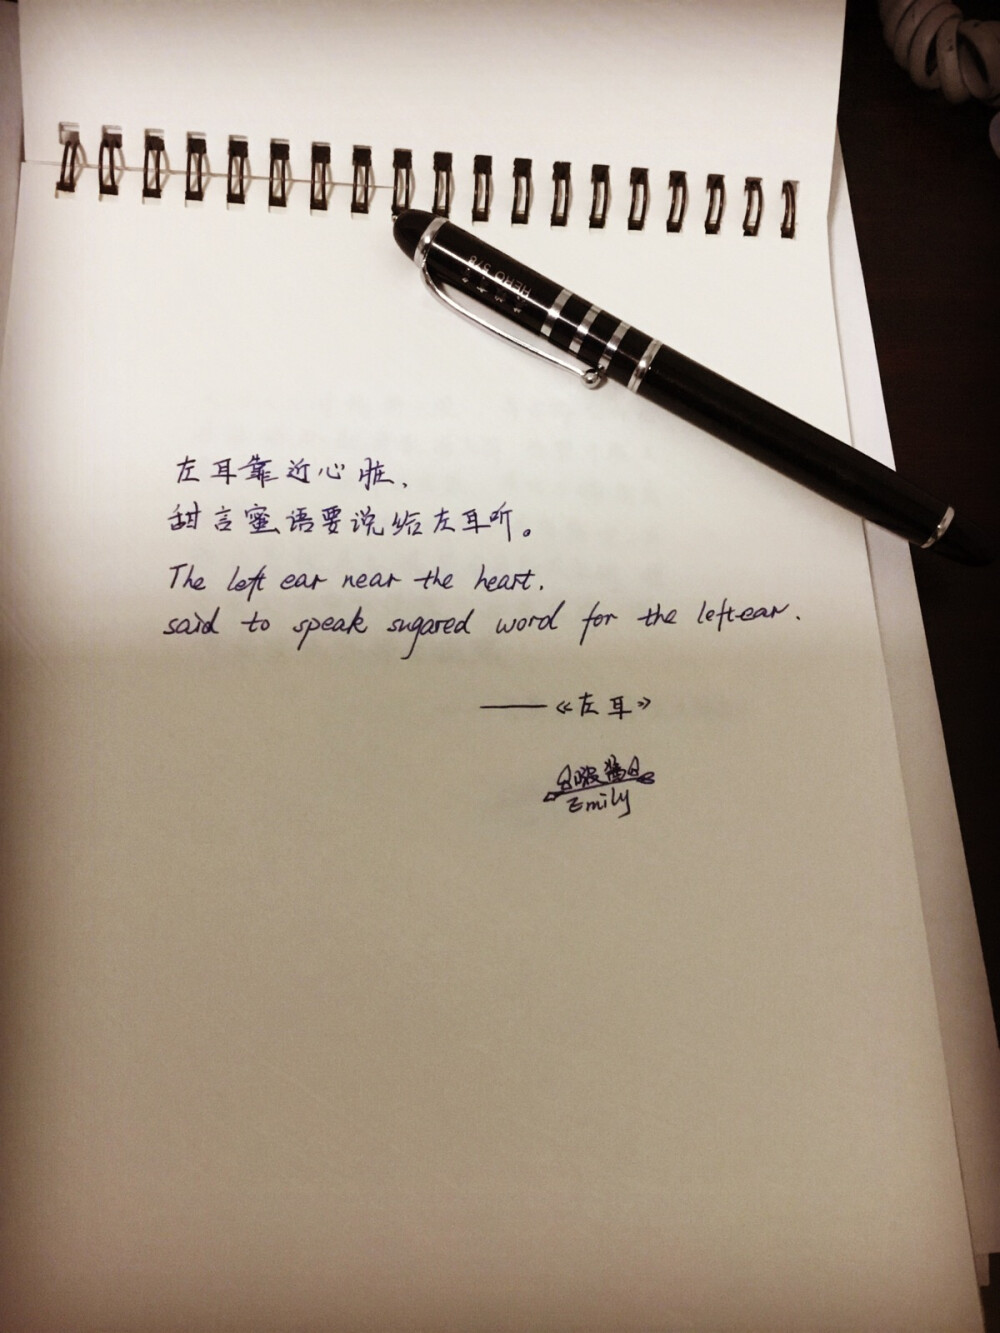 HERO 578
左耳靠近心脏、
甜言蜜语要说给左耳听。
The left ear near the heart.
said to speak sugared word for the left ear.
——《左耳》
Emily